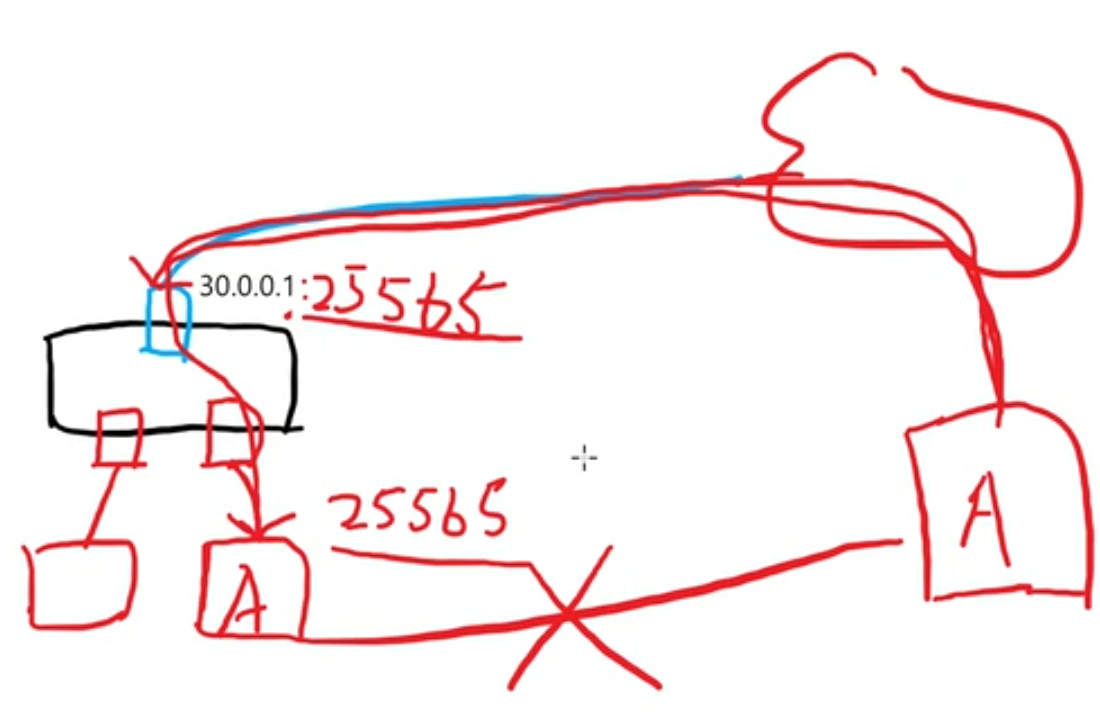 30.0.0.1:25565
25565
A
A